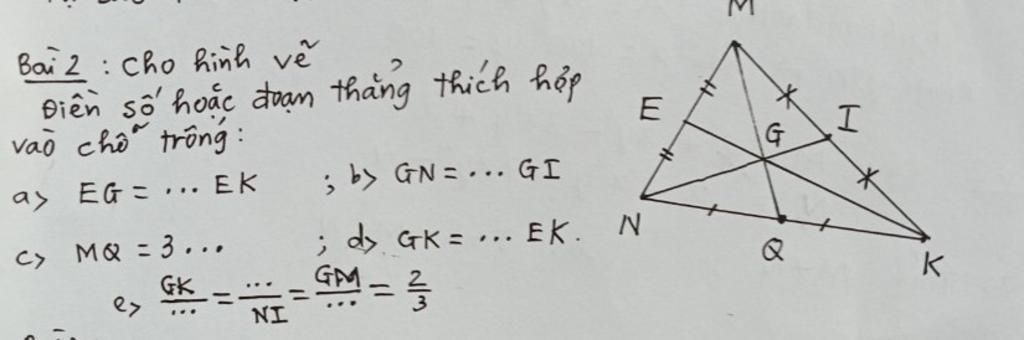 Bài 2 : Cho hình vẽ
Điền số hoặc đoạn thẳng thích hợp
vào chỗ trống:
a> EG = ... EK ; b> GN = ... GI
c> MQ = 3 ... ; d> GK = ... EK.
e> GK/... = .../NI = GM/... = 2/3
M
E
I
G
N
Q
K